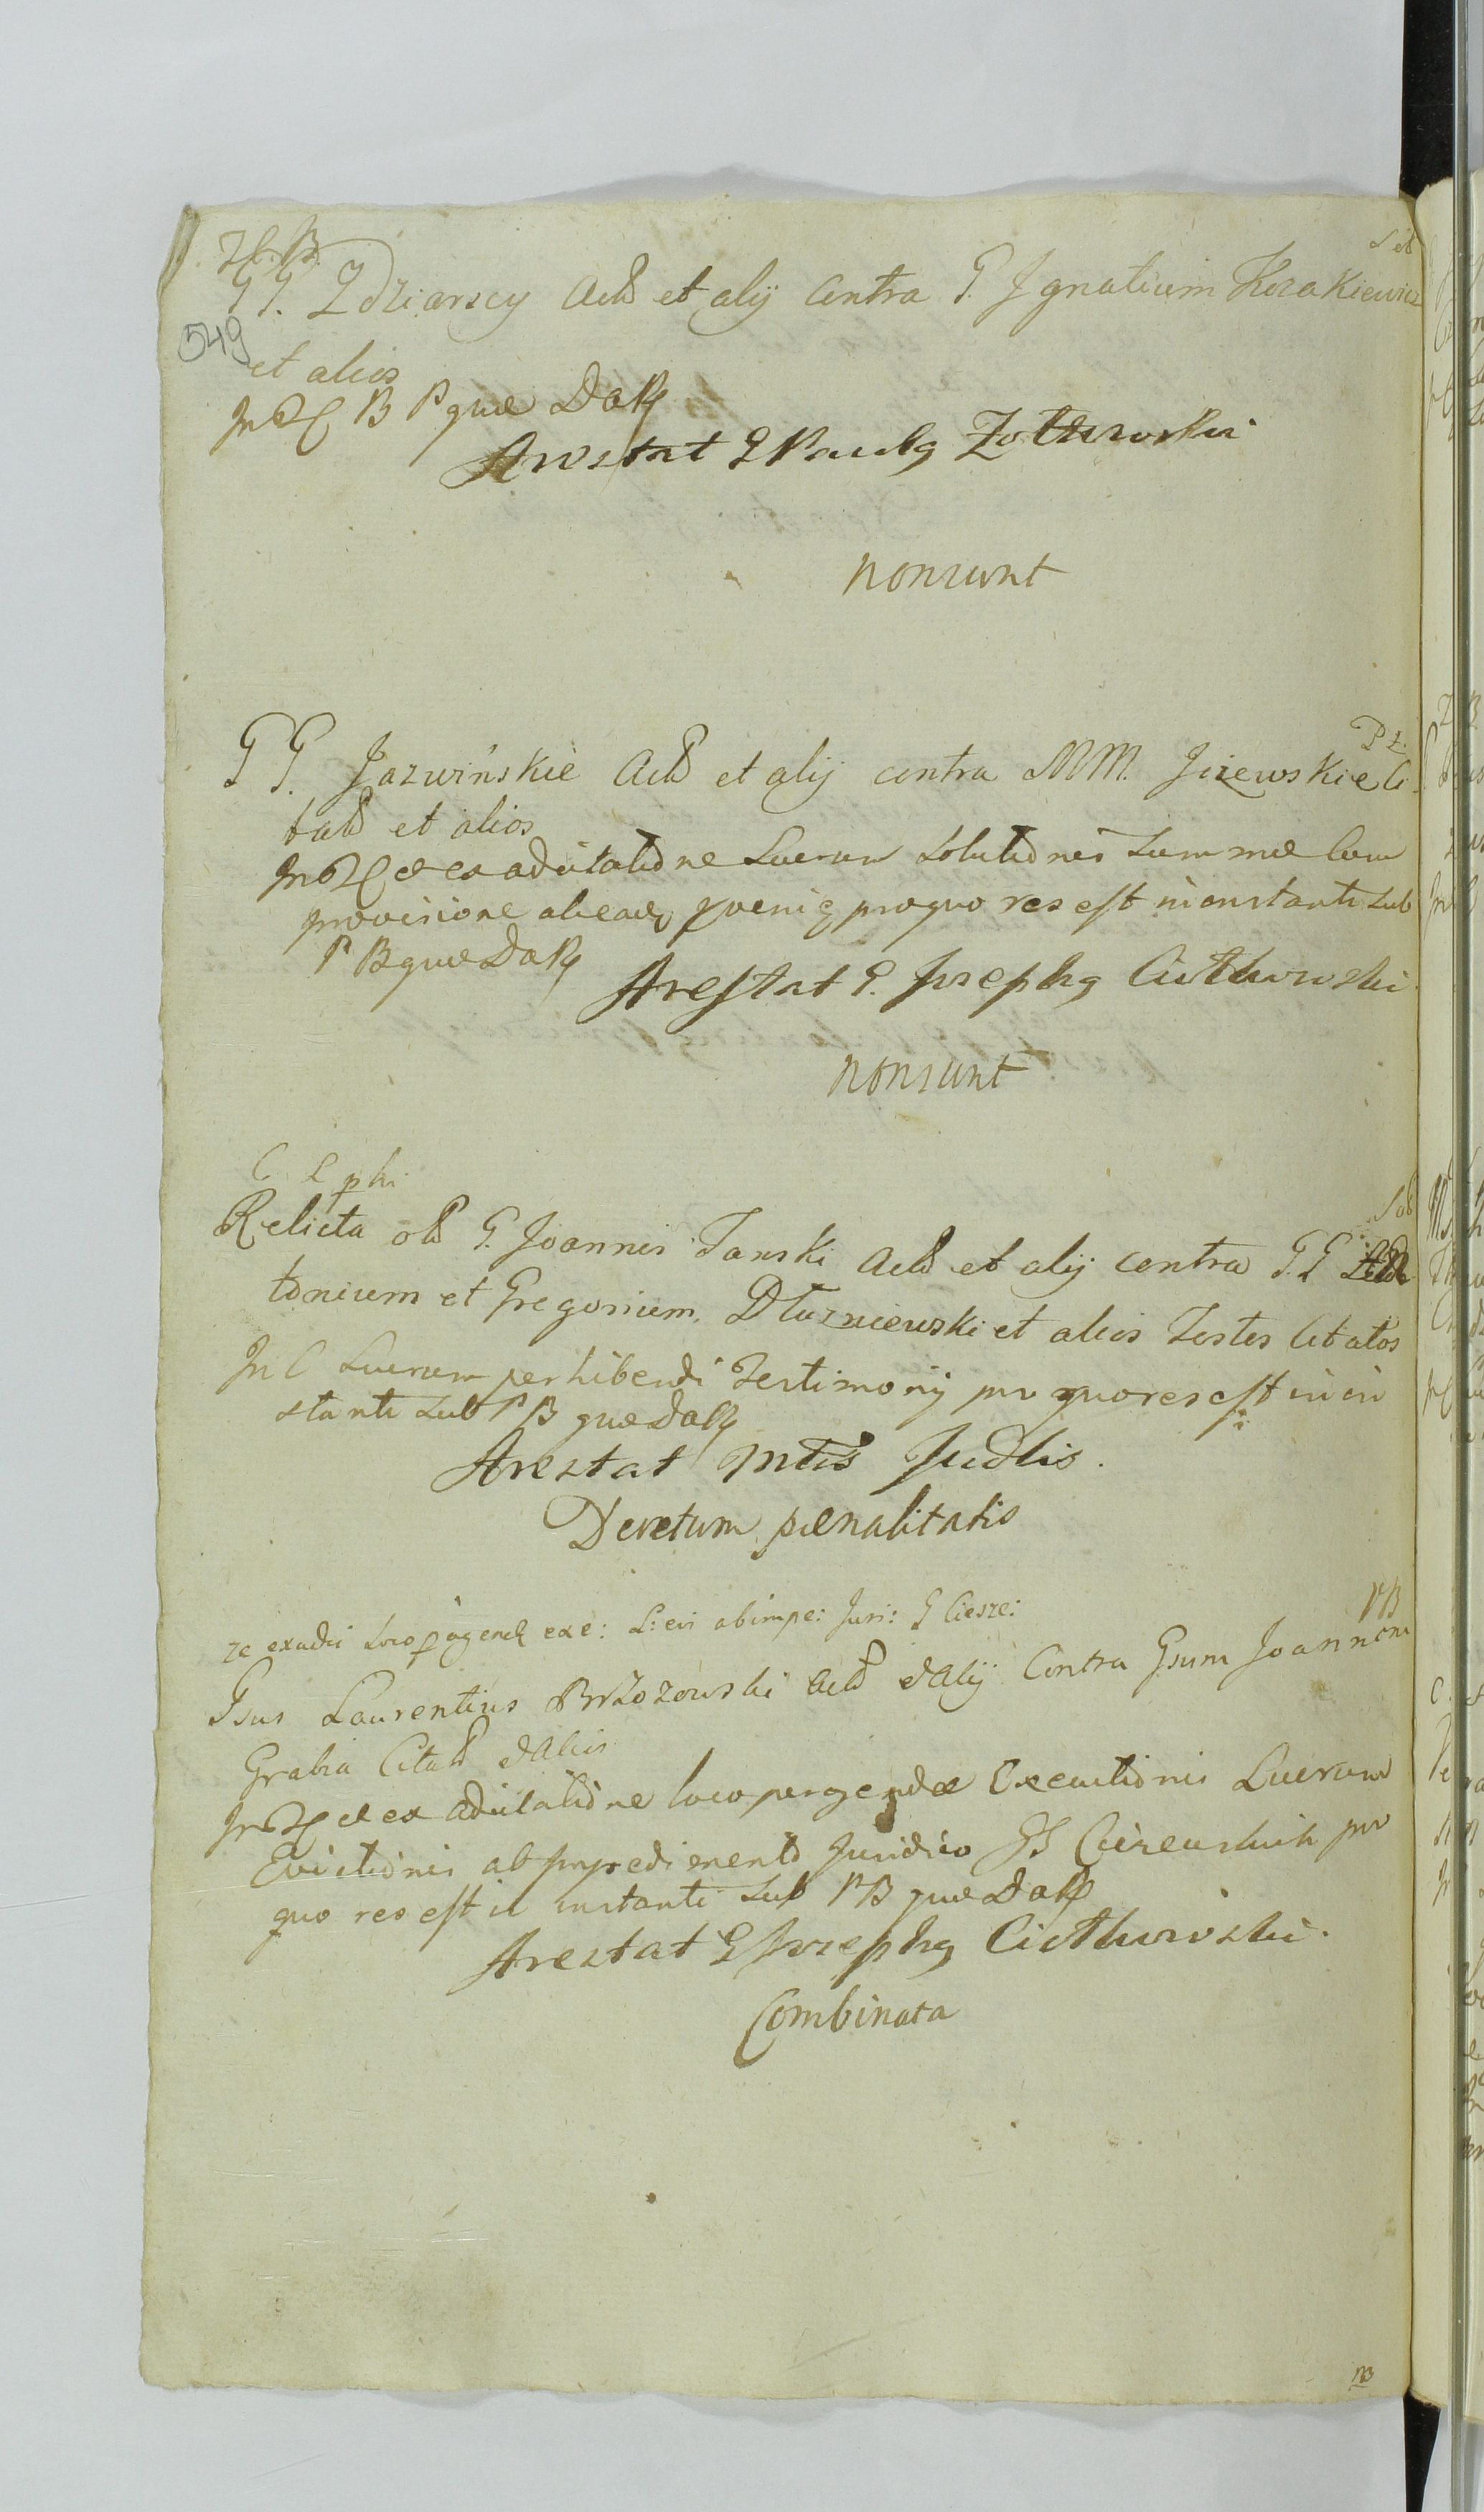 GG. Zdziarscy Actð et alij contra G. Ignatium Kozakiewicz
549
et alios
B P quæ Daß
Arestat G Paulg Zołtkowski
nonsunt
GG. Jazwińskie Actð et alij contra MM. Jizewskie Ci
tatð et alios
ex aditatiõne Lucrum Solutiõnis Summæ cum
provisione ab eadq proveniẽ pro quo res est in instanti sub
P B quæ Daß
Arestat G. Jozephg Ciołkowski
nonsunt
C L phi
Relicta olð G. Joannis Tanski Actð et alij contra G.G
tonium et Gregorium Dłuzniewski et alios Testes Citatos
In C Lucrum perhibendi Testimonij pro quo res est in in
stanti sub P B quæ Daß
Arestat Mtis Judlis.
Decretum pœnalitatis
ze exadii loco pagend exe: L: evi ab impe: Juri: G Ciesze:
PB
Gsus Laurentius Brzozowski Actð et Alij Contra Gsum Joannem
Grabia Citatð et Alios
ex aditatiõne loco peragendæ Executiõnis Lucrum
Evictiõnis ab impedimento Juridico GG pro
quo res est in instanti sub PB quæ Daß
Arestat G Jozephg Ciołkowski.
Combinata